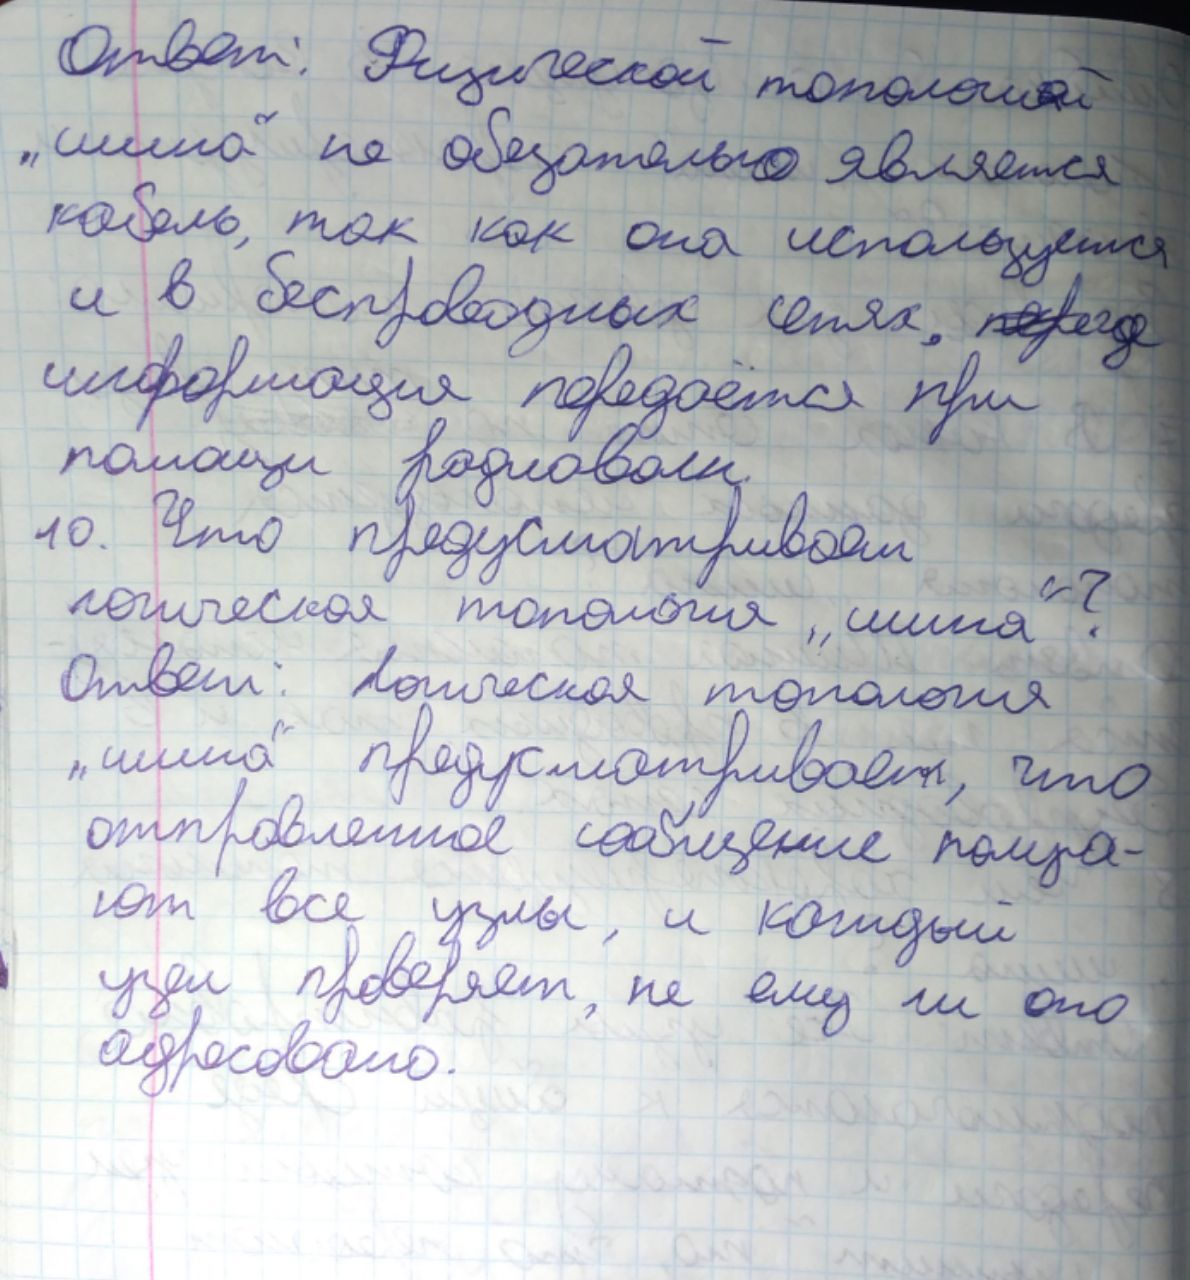 Ответ: Физической топологией
„шина“ не обезательно является
кабель, так как она используется
и в беспроводных сетях, где
информация передаётся при
помощи радиоволн.
10. Что предусматривает
логическая топология „шина“?
Ответ: Логическая топология
„шина“ предусматривает, что
отправленное сообщение получа-
ют все узлы, и каждый
узел проверяет, не ему ли оно
адресовано.